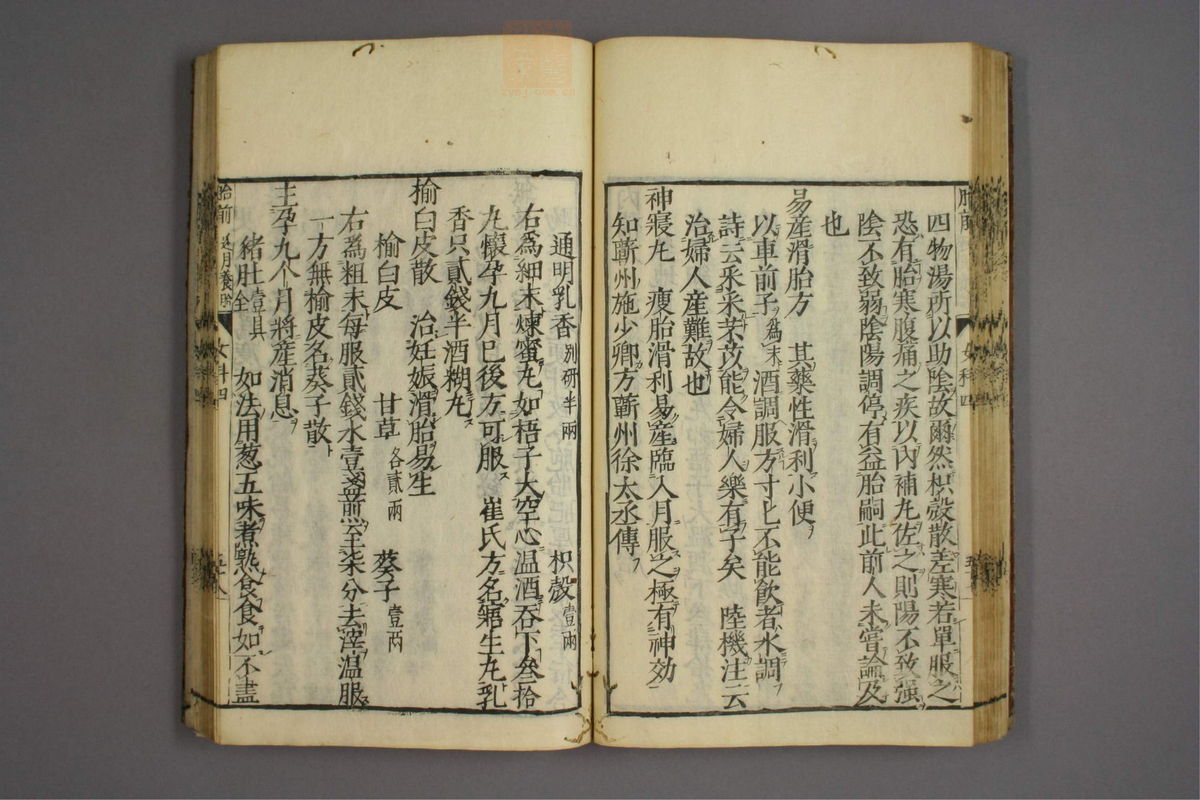 四物湯所以助陰故爾然枳殼散差寒若單服之
恐有胎寒腹痛之疾以內補丸佐之則陽不致强
陰不致弱陰陽調停有益胎嗣此前人未嘗論及
也
易産滑胎方　其藥性滑利小便
以車前子為末酒調服方寸匕不能飲者水調
詩云采采芣苢能令婦人樂有子矣　陸機注云
治婦人産難故也
神寢丸　瘦胎滑利易産臨入月服之極有神効
知蘄州施少卿方蘄州徐太丞傳
通明乳香別研半兩　枳殼壹兩
右為細末煉蜜丸如梧子大空心温酒吞下叁拾
丸懷孕九月已後方可服　崔氏方名瘯生丸乳
香只貳錢半酒糊丸
榆白皮散　治妊娠滑胎易生
榆白皮　甘草各貳兩　葵子壹兩
右為粗末每服貳錢水壹盞煎至柒分去滓温服
一方無榆皮名葵子散
主孕九个月將產消息
豬肚壹具全　如法用葱五味煮熟食食如不盡
胎前　女科四